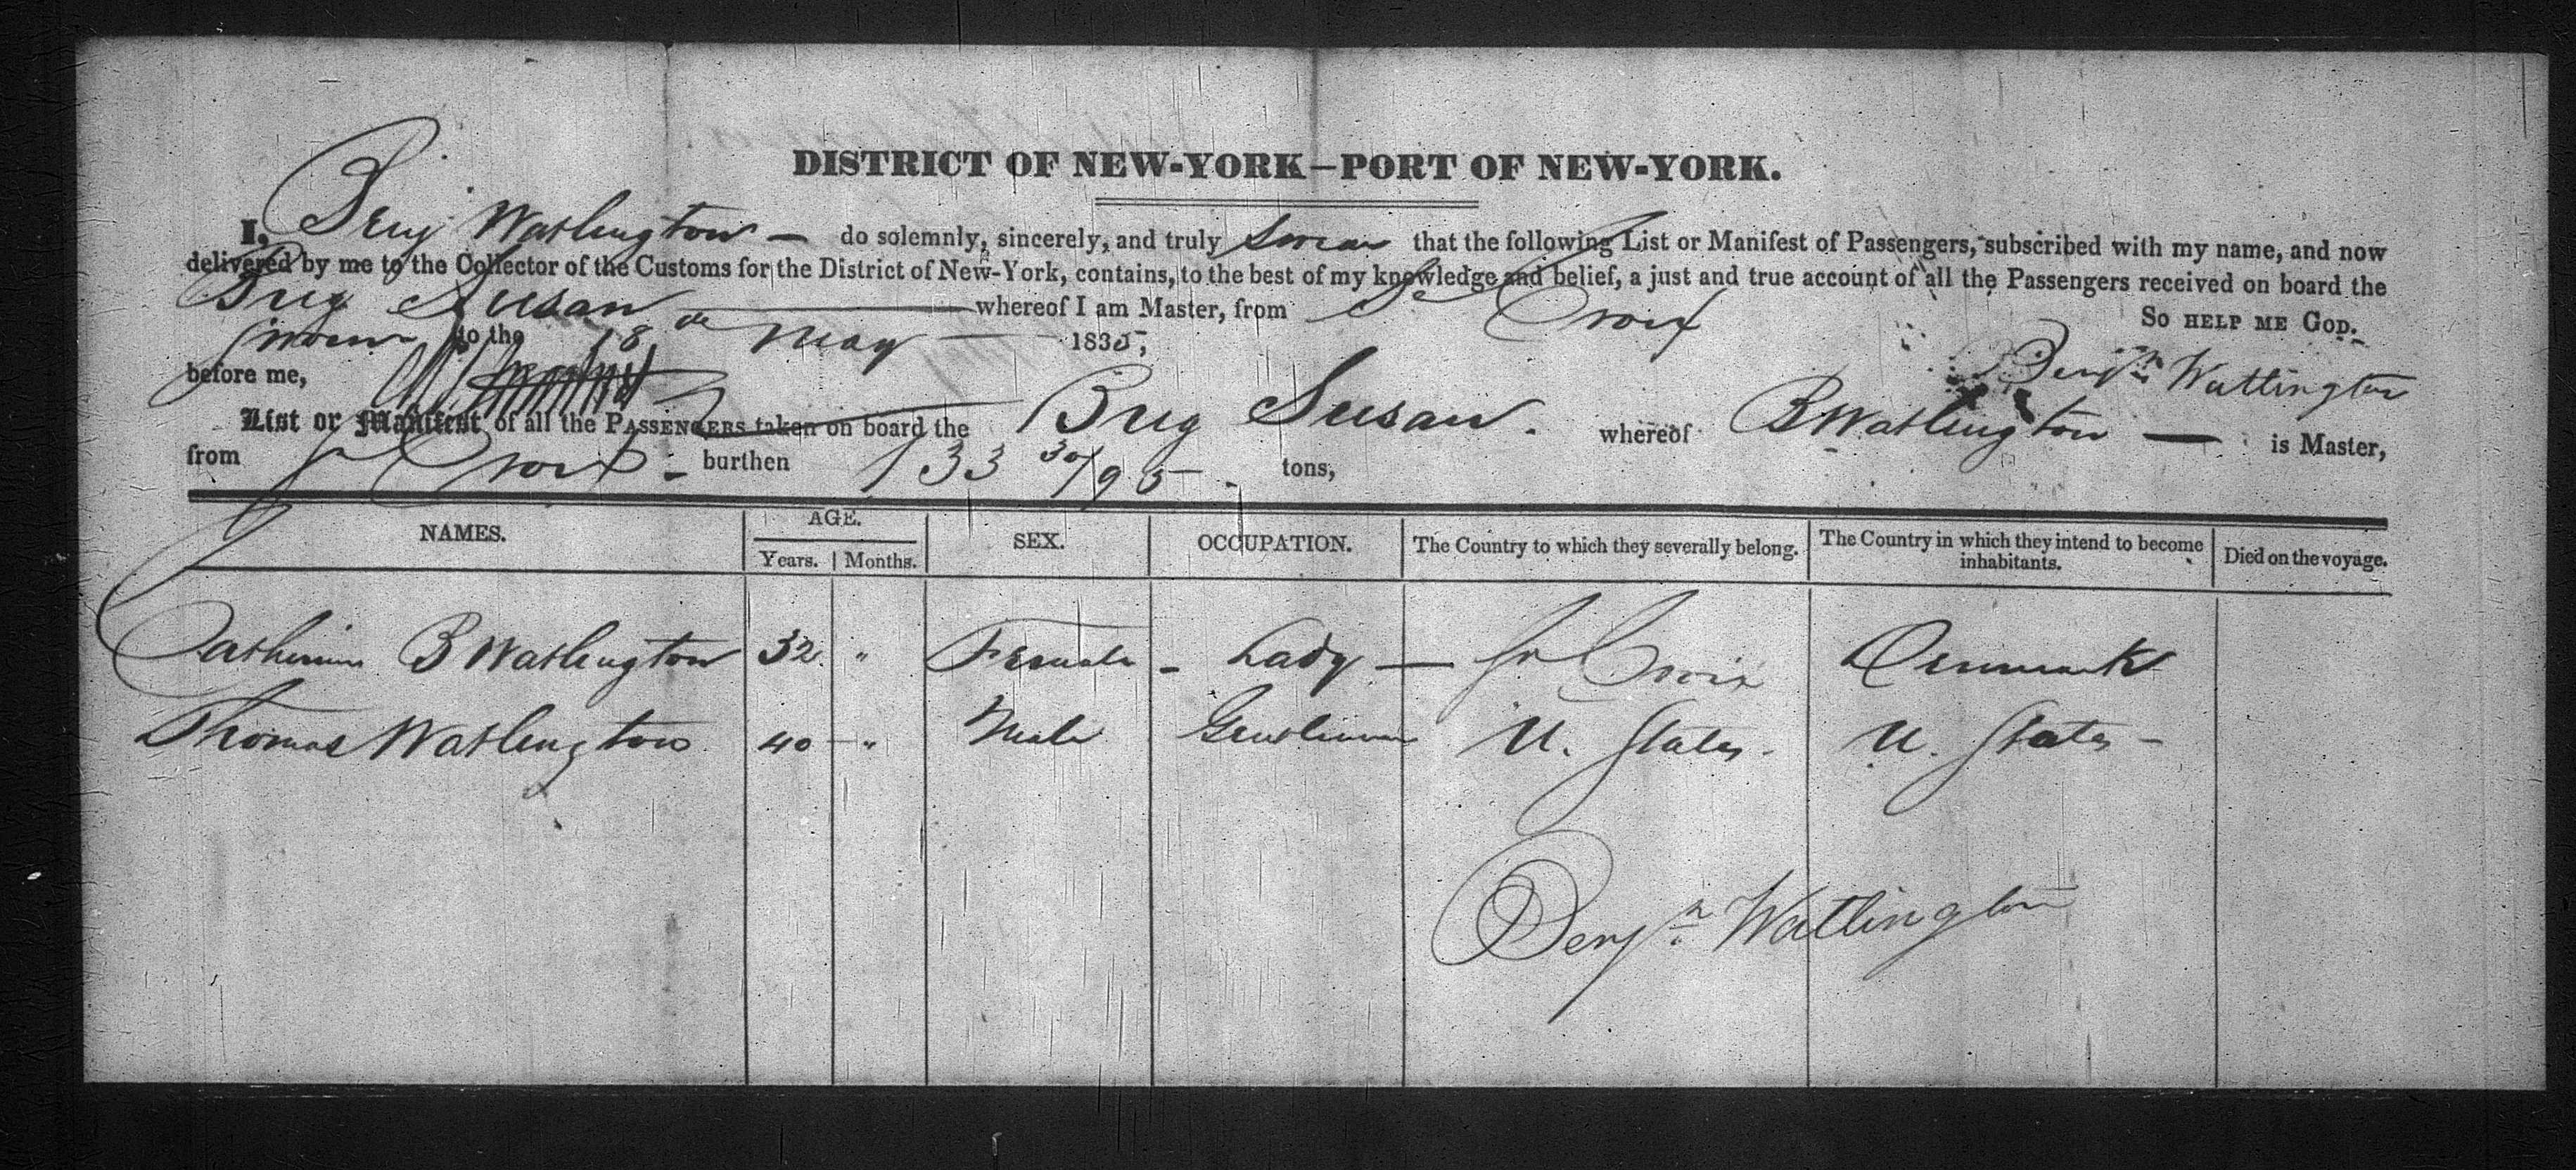 DISTRICT OF NEW-YORK—PORT OF NEW-YORK.
I, Benj Watlington — do solemnly, sincerely, and truly Swear that the following List or Manifest of Passengers, subscribed with my name, and now
delivered by me to the Collector of the Customs for the District of New-York, contains, to the best of my knowledge and belief, a just and true account of all the Passengers received on board the
Brig Susan whereof I am Master, from St Croix
So HELP ME GOD.
Sworn to the 18th May 1835,
Benjn Watlington
before me,
List or Manifest of all the PASSENGERS taken on board the Brig Susan. whereof B Watlington — is Master,
from St Croix - burthen 133 30/95 tons,
NAMES. AGE. Years. Months. SEX. OCCUPATION. The Country to which they severally belong. The Country in which they intend to become inhabitants. Died on the voyage.
Catherine B Watlington 32 " Female - Lady — St Croix Denmark
Thomas Watlington 40 " Male Gentleman U. States - U. States -
Benjn Watlington